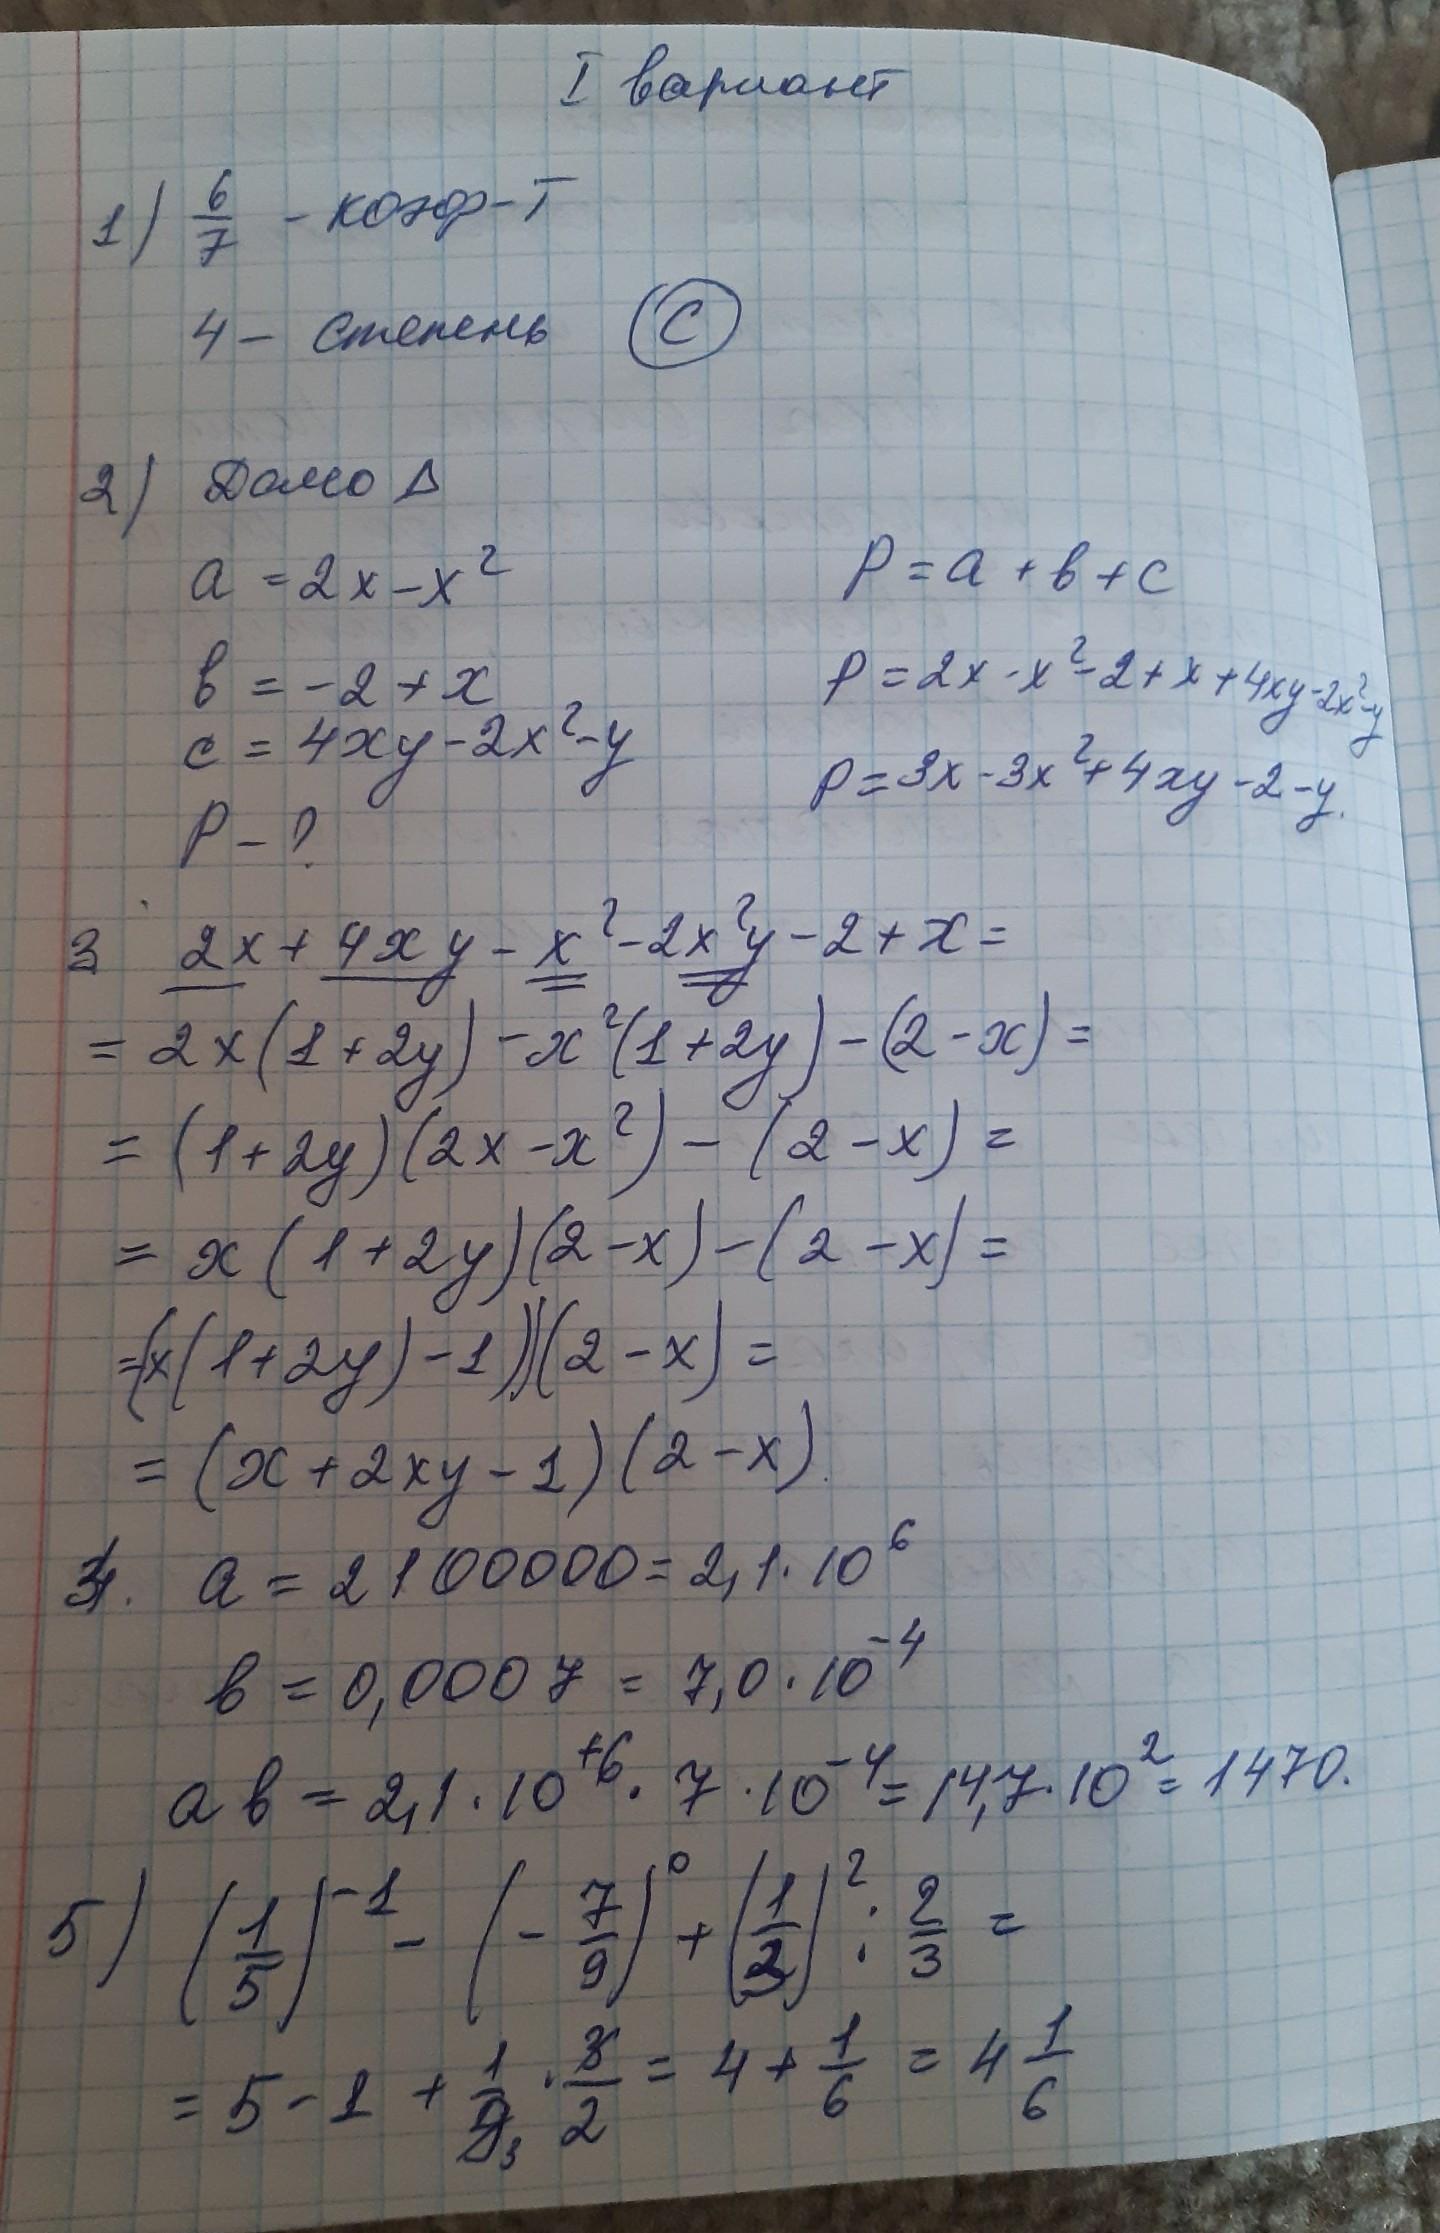 I вариант
1) 6/7 - коэф-т
4 - степень (C)
2) Дано Δ
a = 2x - x²
b = -2 + x
c = 4xy - 2x² - y
P - ?
P = a + b + c
P = 2x - x² - 2 + x + 4xy - 2x² - y
P = 3x - 3x² + 4xy - 2 - y.
3 2x + 4xy - x² - 2x²y - 2 + x =
= 2x(1 + 2y) - x²(1 + 2y) - (2 - x) =
= (1 + 2y)(2x - x²) - (2 - x) =
= x(1 + 2y)(2 - x) - (2 - x) =
= (x(1 + 2y) - 1)(2 - x) =
= (x + 2xy - 1)(2 - x).
4. a = 2100000 = 2,1 · 10⁶
b = 0,0007 = 7,0 · 10⁻⁴
ab = 2,1 · 10⁺⁶ · 7 · 10⁻⁴ = 14,7 · 10² = 1470.
5) (1/5)⁻¹ - (- 7/9)⁰ + (1/3)² : 2/3 =
= 5 - 1 + 1/9 3 · 3/2 = 4 + 1/6 = 4 1/6